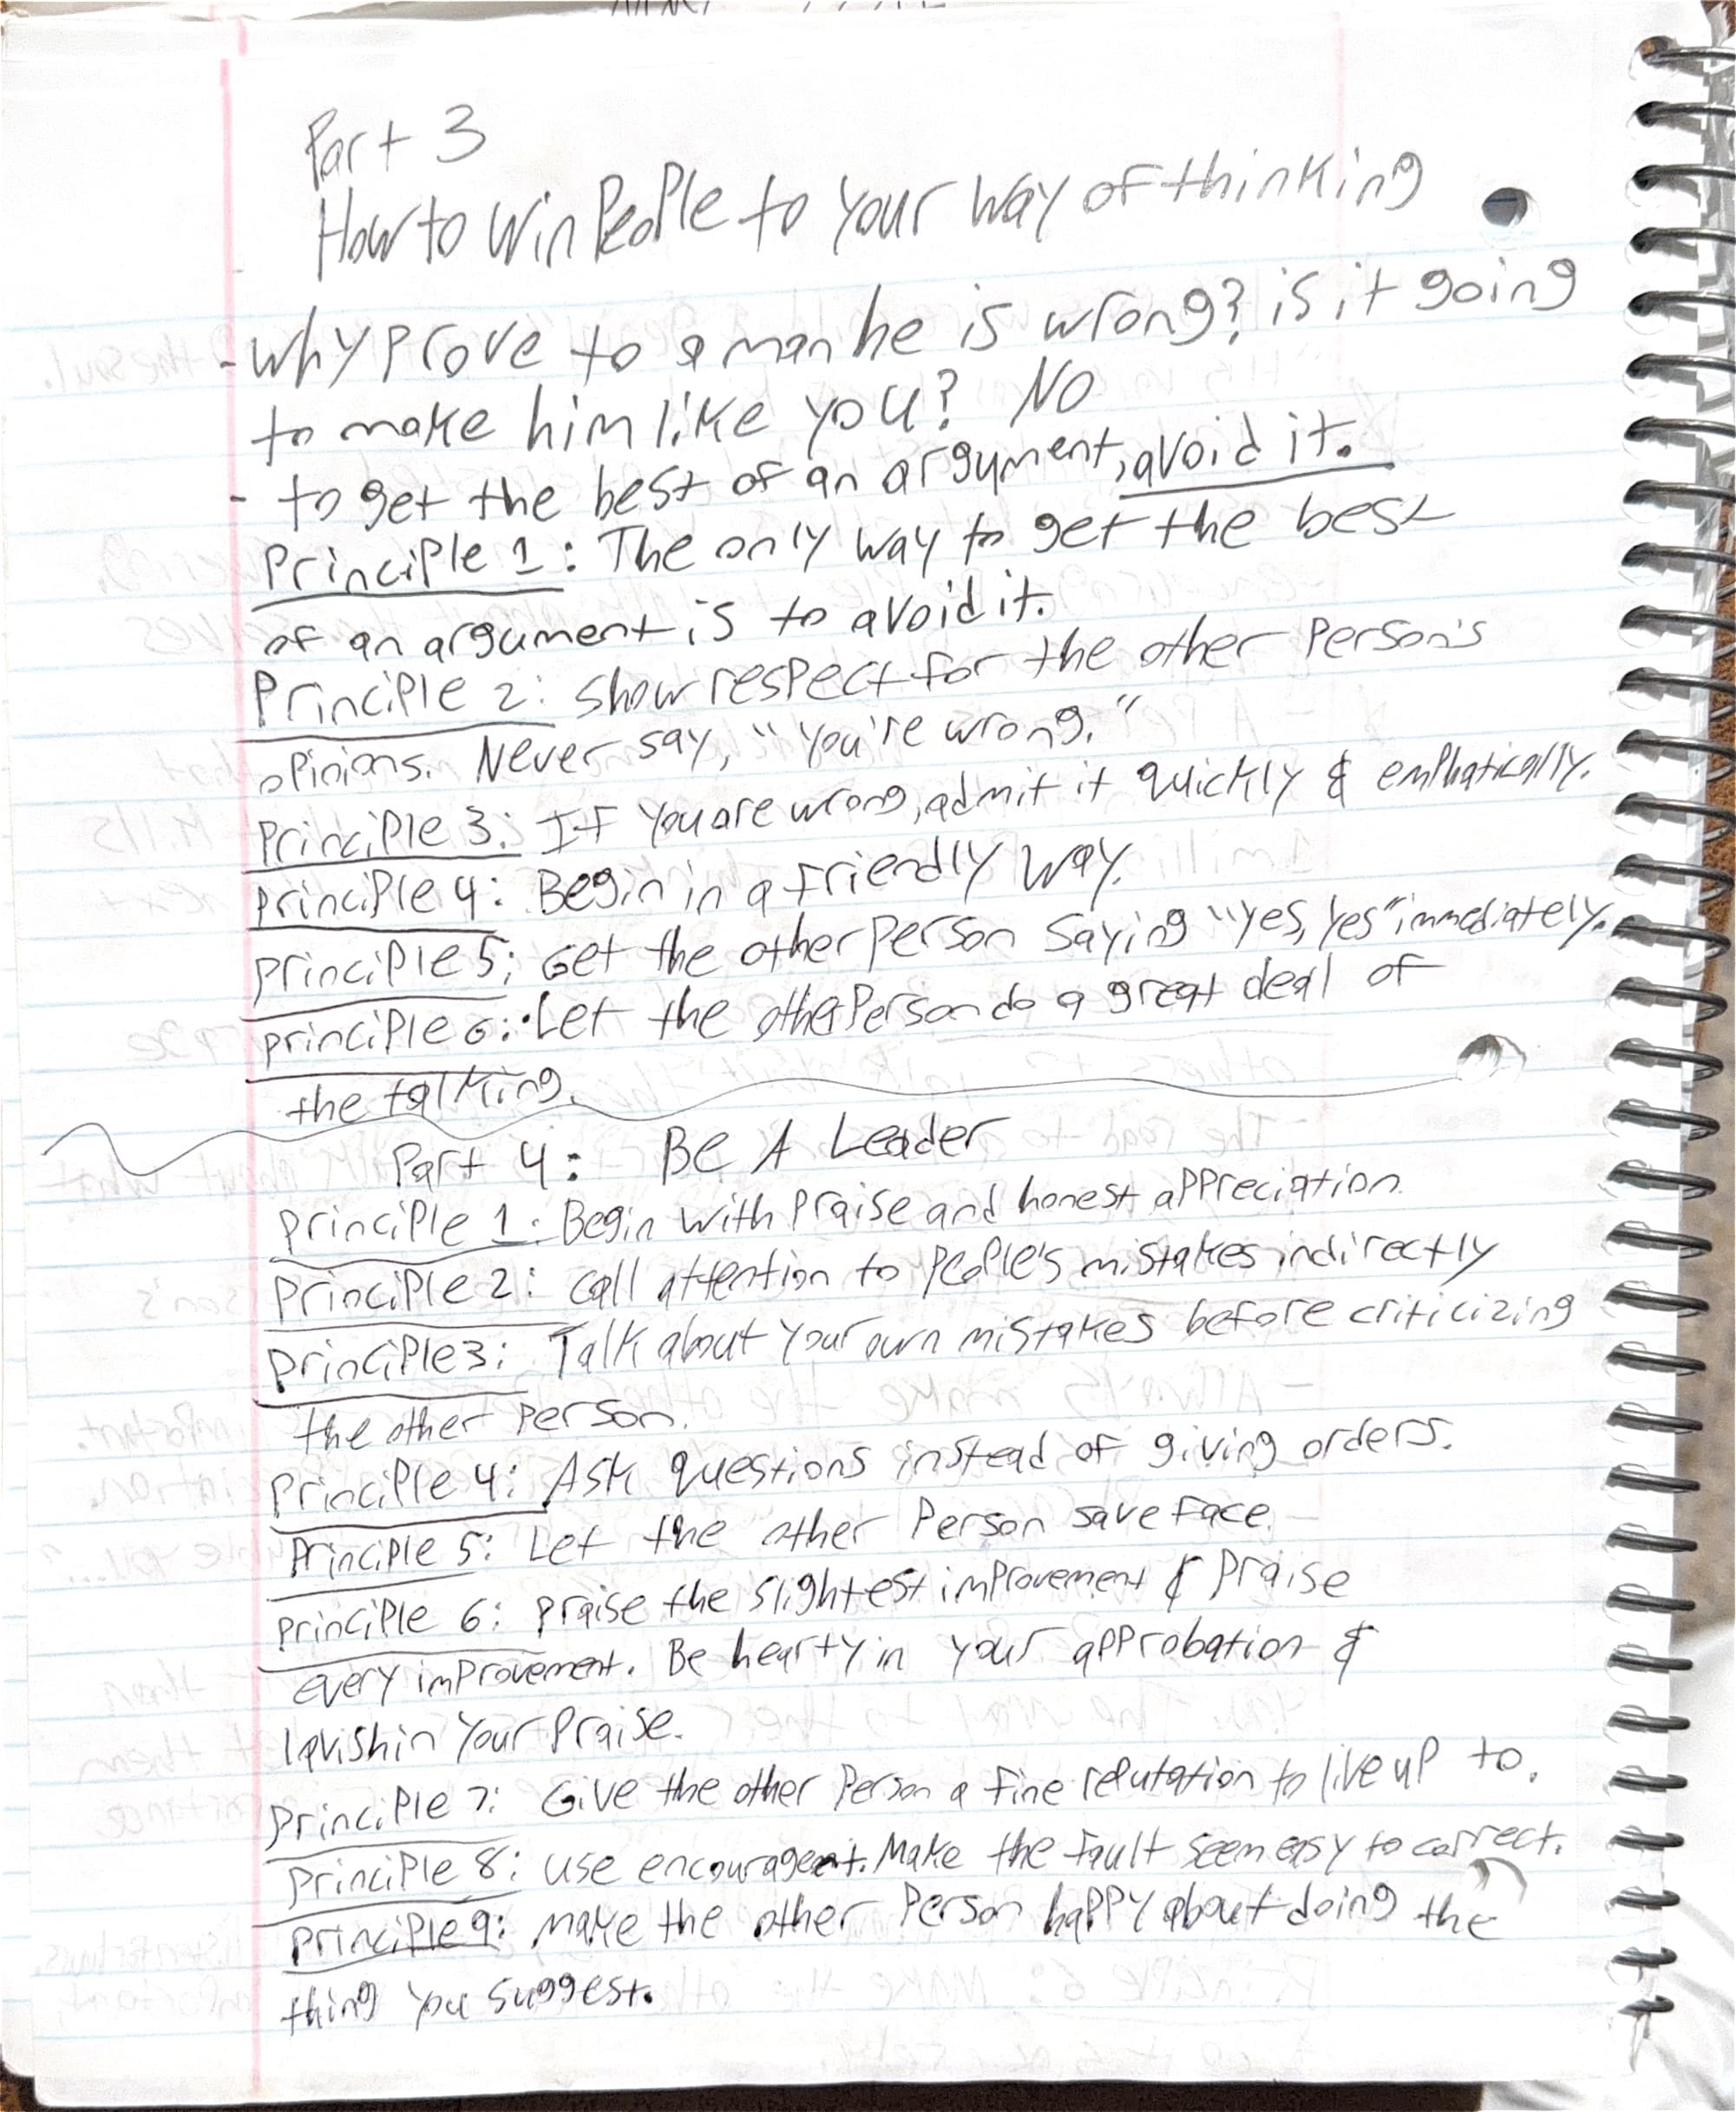 Part 3
How to Win People to Your Way of thinking
- Why prove to a man he is wrong? is it going
to make him like you? NO
- to get the best of an argument, avoid it.
Principle 1: The only way to get the best
of an argument is to avoid it.
Principle 2: show respect for the other Person's
opinions. Never say, "You're wrong."
Principle 3: If you are wrong, admit it quickly & emphatically.
principle 4: Begin in a friendly way.
principle 5: Get the other person saying "yes, yes" immediately.
principle 6: Let the other Person do a great deal of
the talking.
Part 4: Be A Leader
principle 1: Begin with praise and honest appreciation.
Principle 2: call attention to people's mistakes indirectly
principle 3: Talk about your own mistakes before criticizing
the other person.
Principle 4: Ask questions instead of giving orders.
Principle 5: Let the other Person save face.
principle 6: praise the slightest improvement & praise
every improvement. Be hearty in your approbation &
lavish in your praise.
principle 7: Give the other Person a fine reputation to live up to.
principle 8: use encouragent. Make the fault seem easy to correct.
principle 9: make the other Person happy about doing the
thing you suggest.